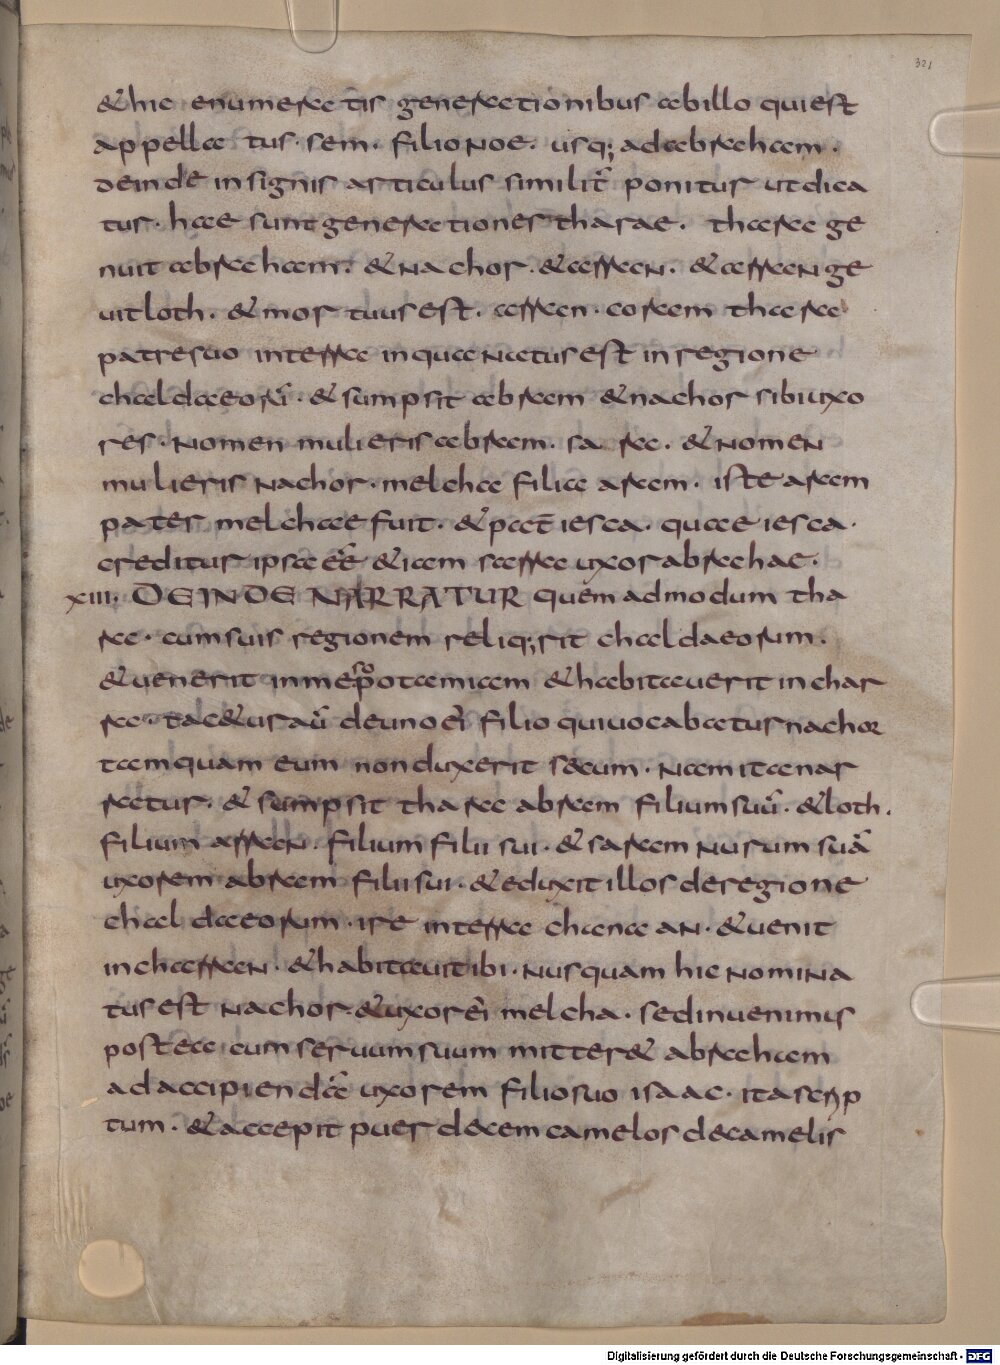 321
& hic enumeratis generationibus ab illo qui est
appellatus · sem · filio noe · usq; ad abraham ·
deinde insignis articulus similit̄ ponitur ut dica
tur · haec sunt generationes tharae · thara ge
nuit abraham · & nachor · & arran · & arran ge
uit loth · & mortuus est · arran · coram thara
patre suo in terra in qua natus est in regione
chaldaeorū · & sumpsit abram & nachor sibi uxo
res · nomen mulieris abram · sara · & nomen
mulieris nachor · melcha filia aram · iste aram
pater melchae fuit · & pat̄ iesca · quae iesca ·
creditur ipsa eē̄ & iam sarra uxor abrahae ·
xiii. DEINDE NARRATUR quem ad modum tha
ra · cum suis regionem reliq;rit chaldaeorum ·
& uenerit in mepotamiam & habitauerit in char
ra · tac& ur aū de uno ei filio qui uocabatur nachor
tamquam eum non duxerit secum · nam ita nar
ratur · & sumpsit thara abram filium suū · & loth ·
filium arran · filium filii sui · & saram nurum suā
uxorem abram filii sui · & eduxit illos de regione
chaldaeorum · ire in terra chanaan · & uenit
in charran · & habitauit ibi · nusquam hic nomina
tus est nachor · & uxor ei melcha · sed inuenimus
postea cum seruum suum mitter& abraham
ad accipiendā uxorem filio suo isaac · ita scrip
tum · & accepit puer decem camelos de camelis
Digitalisierung gefördert durch die Deutsche Forschungsgemeinschaft - DFG